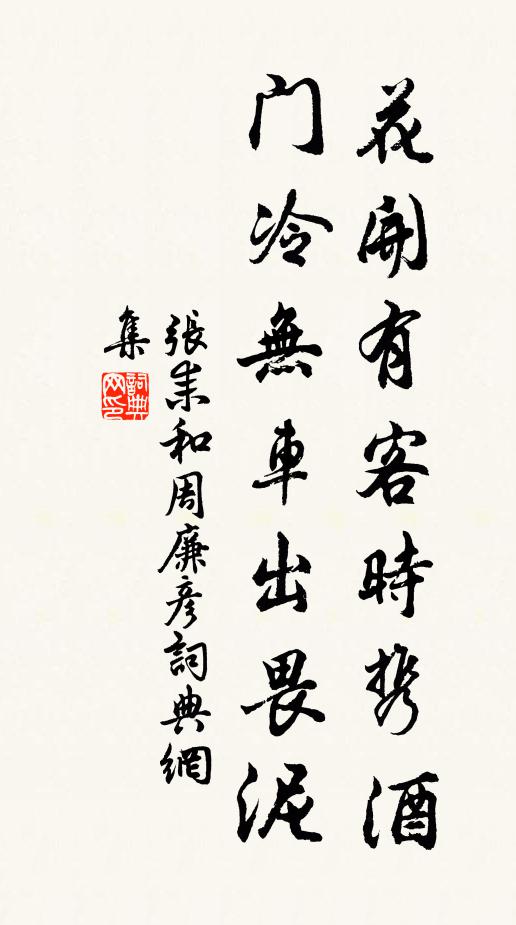 花開有客時携酒
門冷無車出畏泥
張耒和周廉彥詞典網
集
詞典
网印